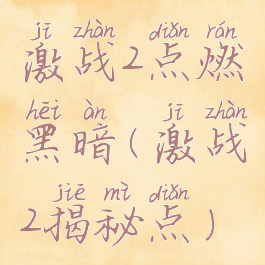 jī zhàn diǎn rán
激战2点燃
hēi àn jī zhàn
黑暗(激战
jiē mì diǎn
2揭秘点)